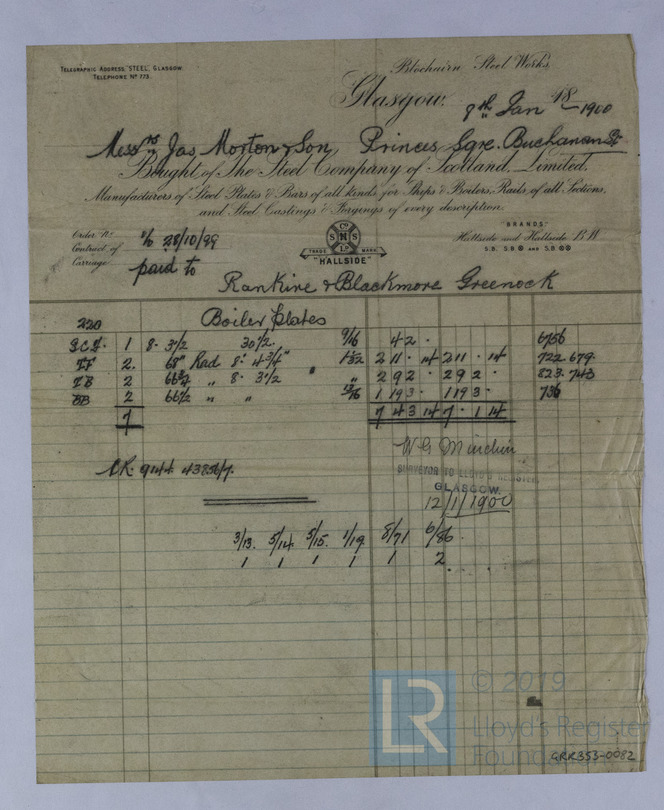 TELEGRAPHIC ADDRESS "STEEL", GLASGOW.
TELEPHONE Nº 773.
Blochairn Steel Works,
Glasgow, 9th Jan 18 1900
Messrs Jas Morton & Son, Princes Sqre. Buchanan St
Bought of The Steel Company of Scotland, Limited,
Manufacturers of Steel Plates & Bars of all kinds for Ships & Boilers, Rails of all Sections,
and Steel Castings & Forgings of every description.
Order No. 28/10/99
Contract of
Carriage paid to
TRADE MARK
"HALLSIDE"
BRANDS
Hallside and Hallside B W
S.B. S.B. and S.B.
Rankine & Blackmore Greenock
220 Boiler Plates
1 8 - 3 1/2 30 1/2 9/16 4 2 6756
2 68" Rad 8: 4 3/4" 1 1/32 2 11 14 2 11 14 722. 679.
2 " 8 - 3 1/2 " 2 9 2 2 9 2 823. 743
BB 2 66 1/2 " " 1 19 3 1 19 3 736
7 7 4 3 14 7 1 14
W G Minchin
SURVEYOR TO LLOYD'S REGISTER,
GLASGOW.
12/1/1900
9144
3/13. 5/14. 5/15. 1/19 8/71 6/86.
1 1 1 1 1 2
LR © 2019
Lloyd's Register
Foundation
GRR353-0082